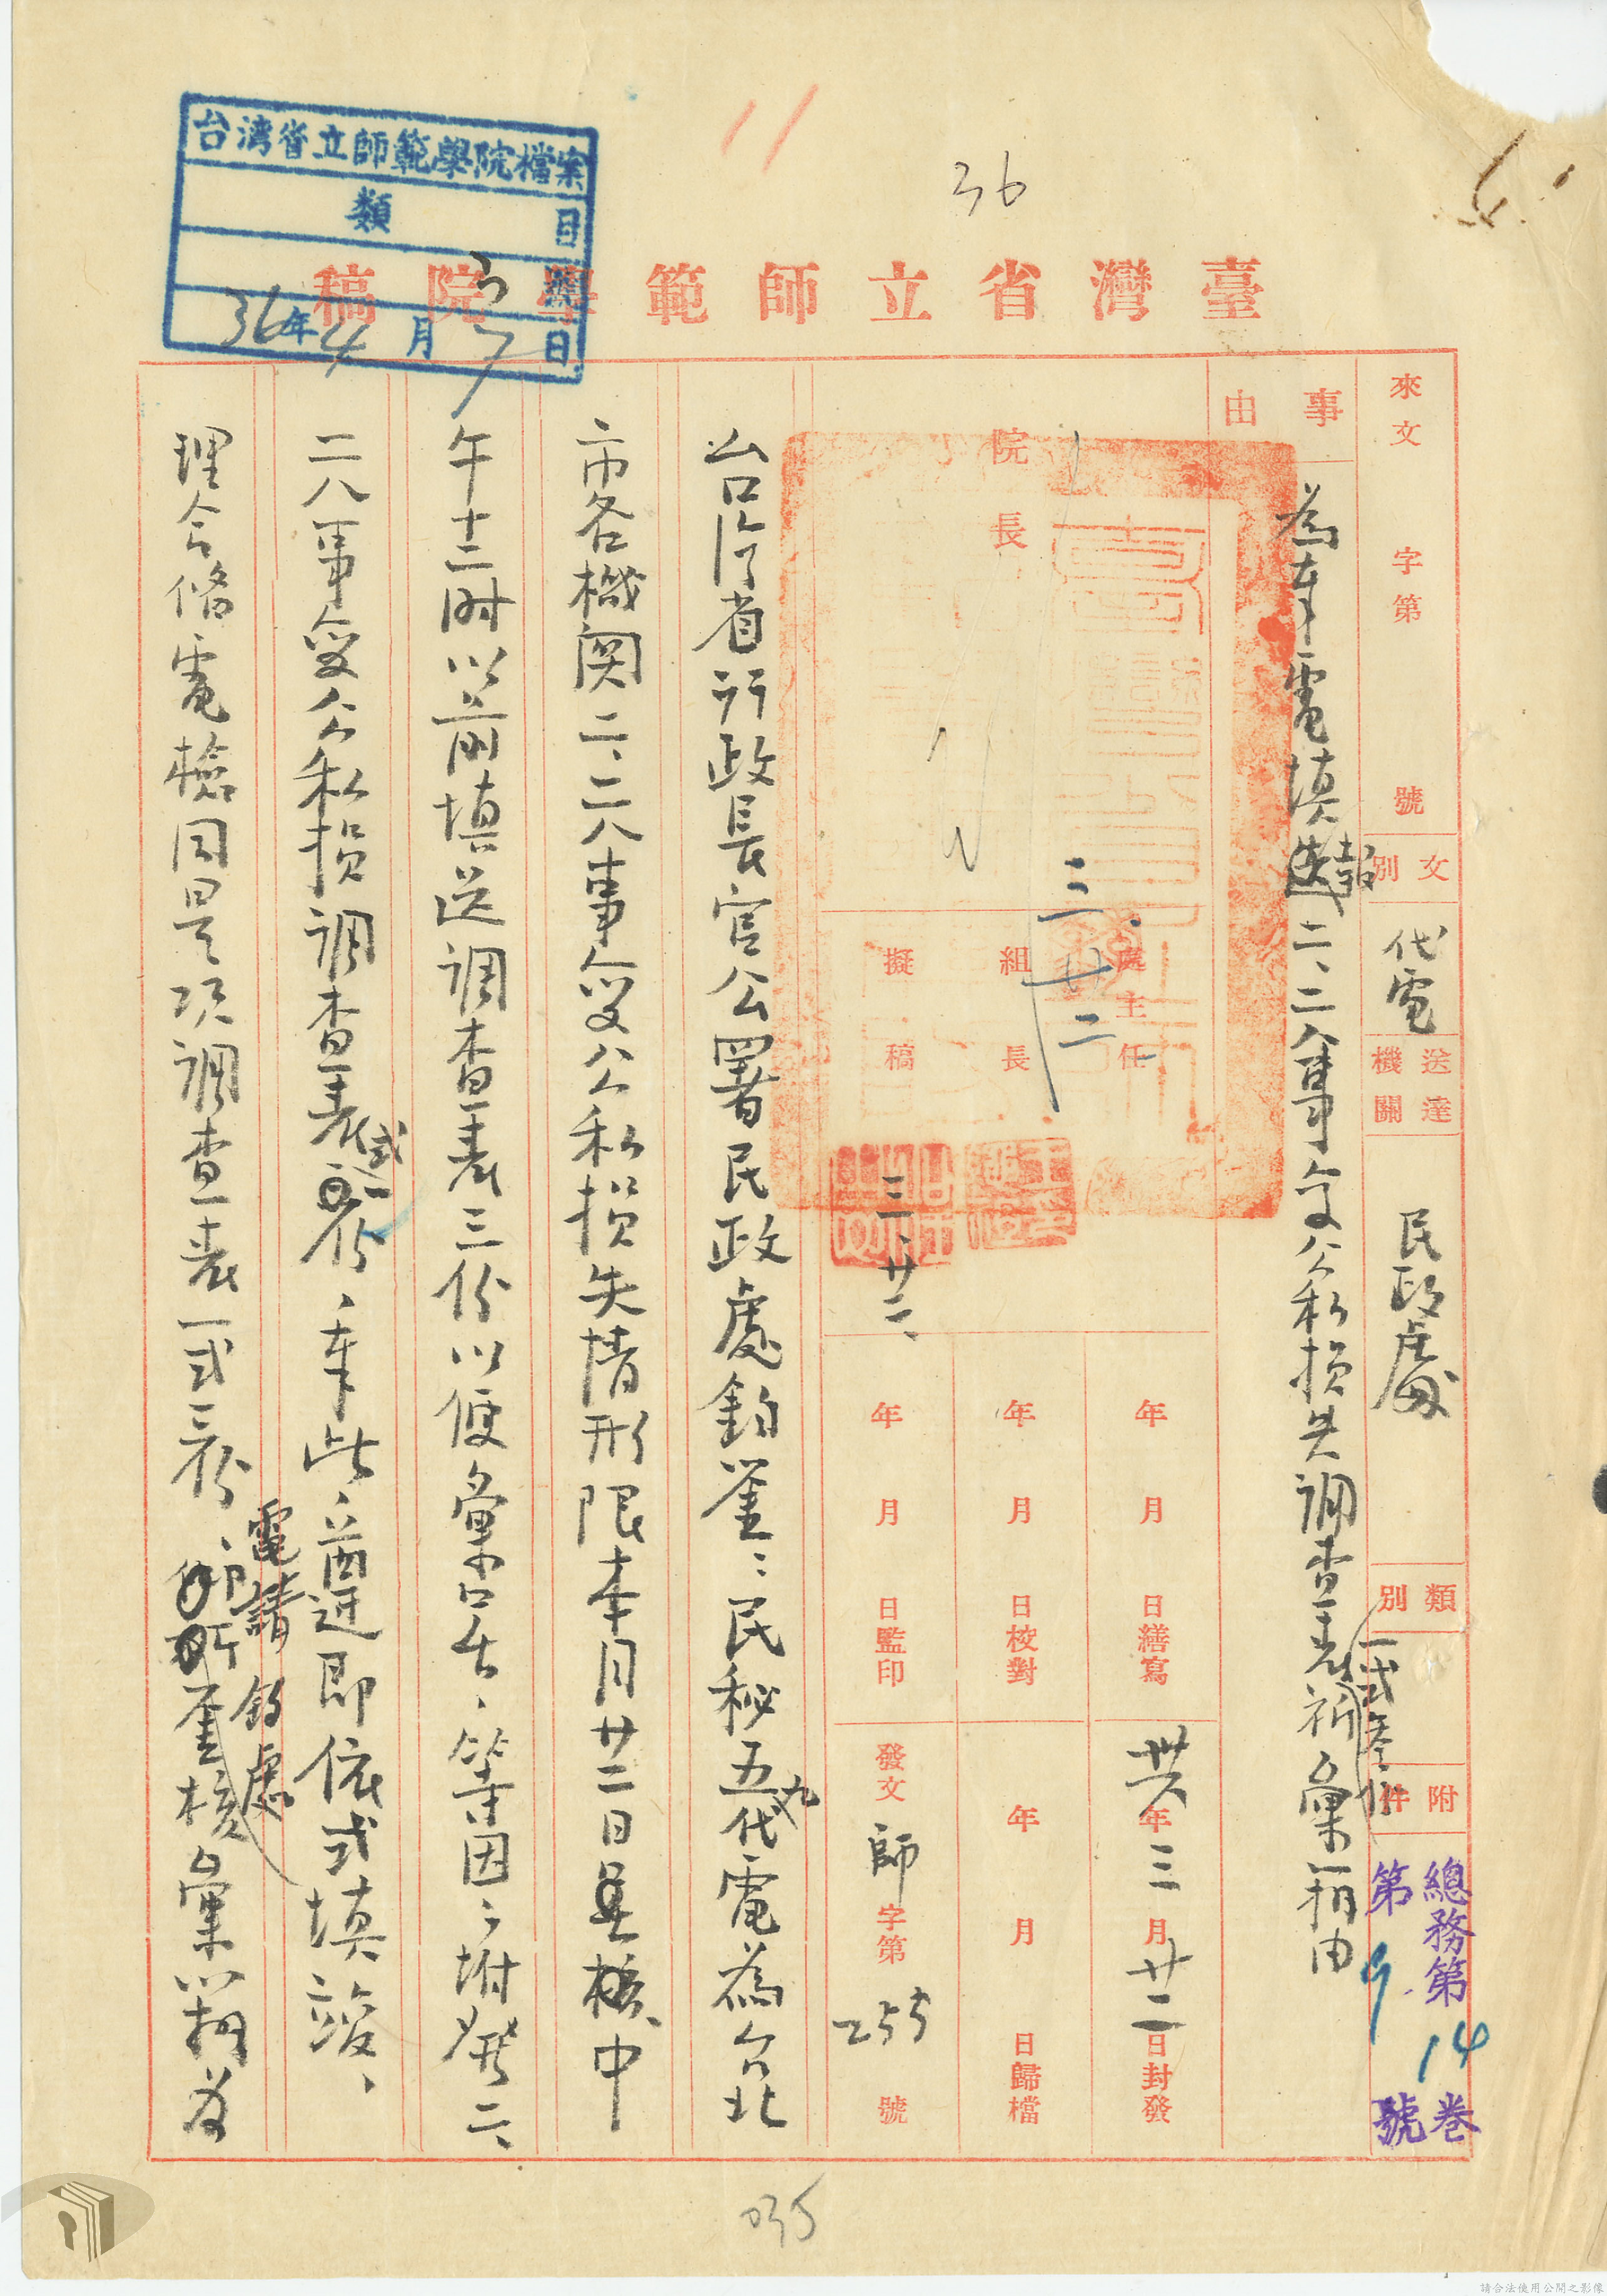 36
臺灣省立師範學院稿
台灣省立師範學院檔案
類 目
號
36年4月7日
來文 字第 號
文別 代電
送達機關 民政處
類別
附件
總務第14卷
第9號
事由
為奉電填報二、二八事变公私損失調查表一式叁份祈彙轉由
院長
處主任
組長
三、廿二
擬稿
三、廿二、
年 月 日繕寫
卅六年三月廿二日封發
年 月 日校對
年 月 日歸檔
年 月 日監印
發文 師字第255號
台灣省行政長官公署民政處鈞鑒：民秘五九代電為台北
市各機関二、二八事变公私損失情形限本月廿二日星期六中
午十二時以前填送調查表三份以便彙呈等因、附發二、
二八事变公私損調查表式一份、奉此、遵即依式填竣、
理合備電檢同是項調查表一式三份、
電請鈞處
鑒核彙轉為
035
請合法使用公開之影像